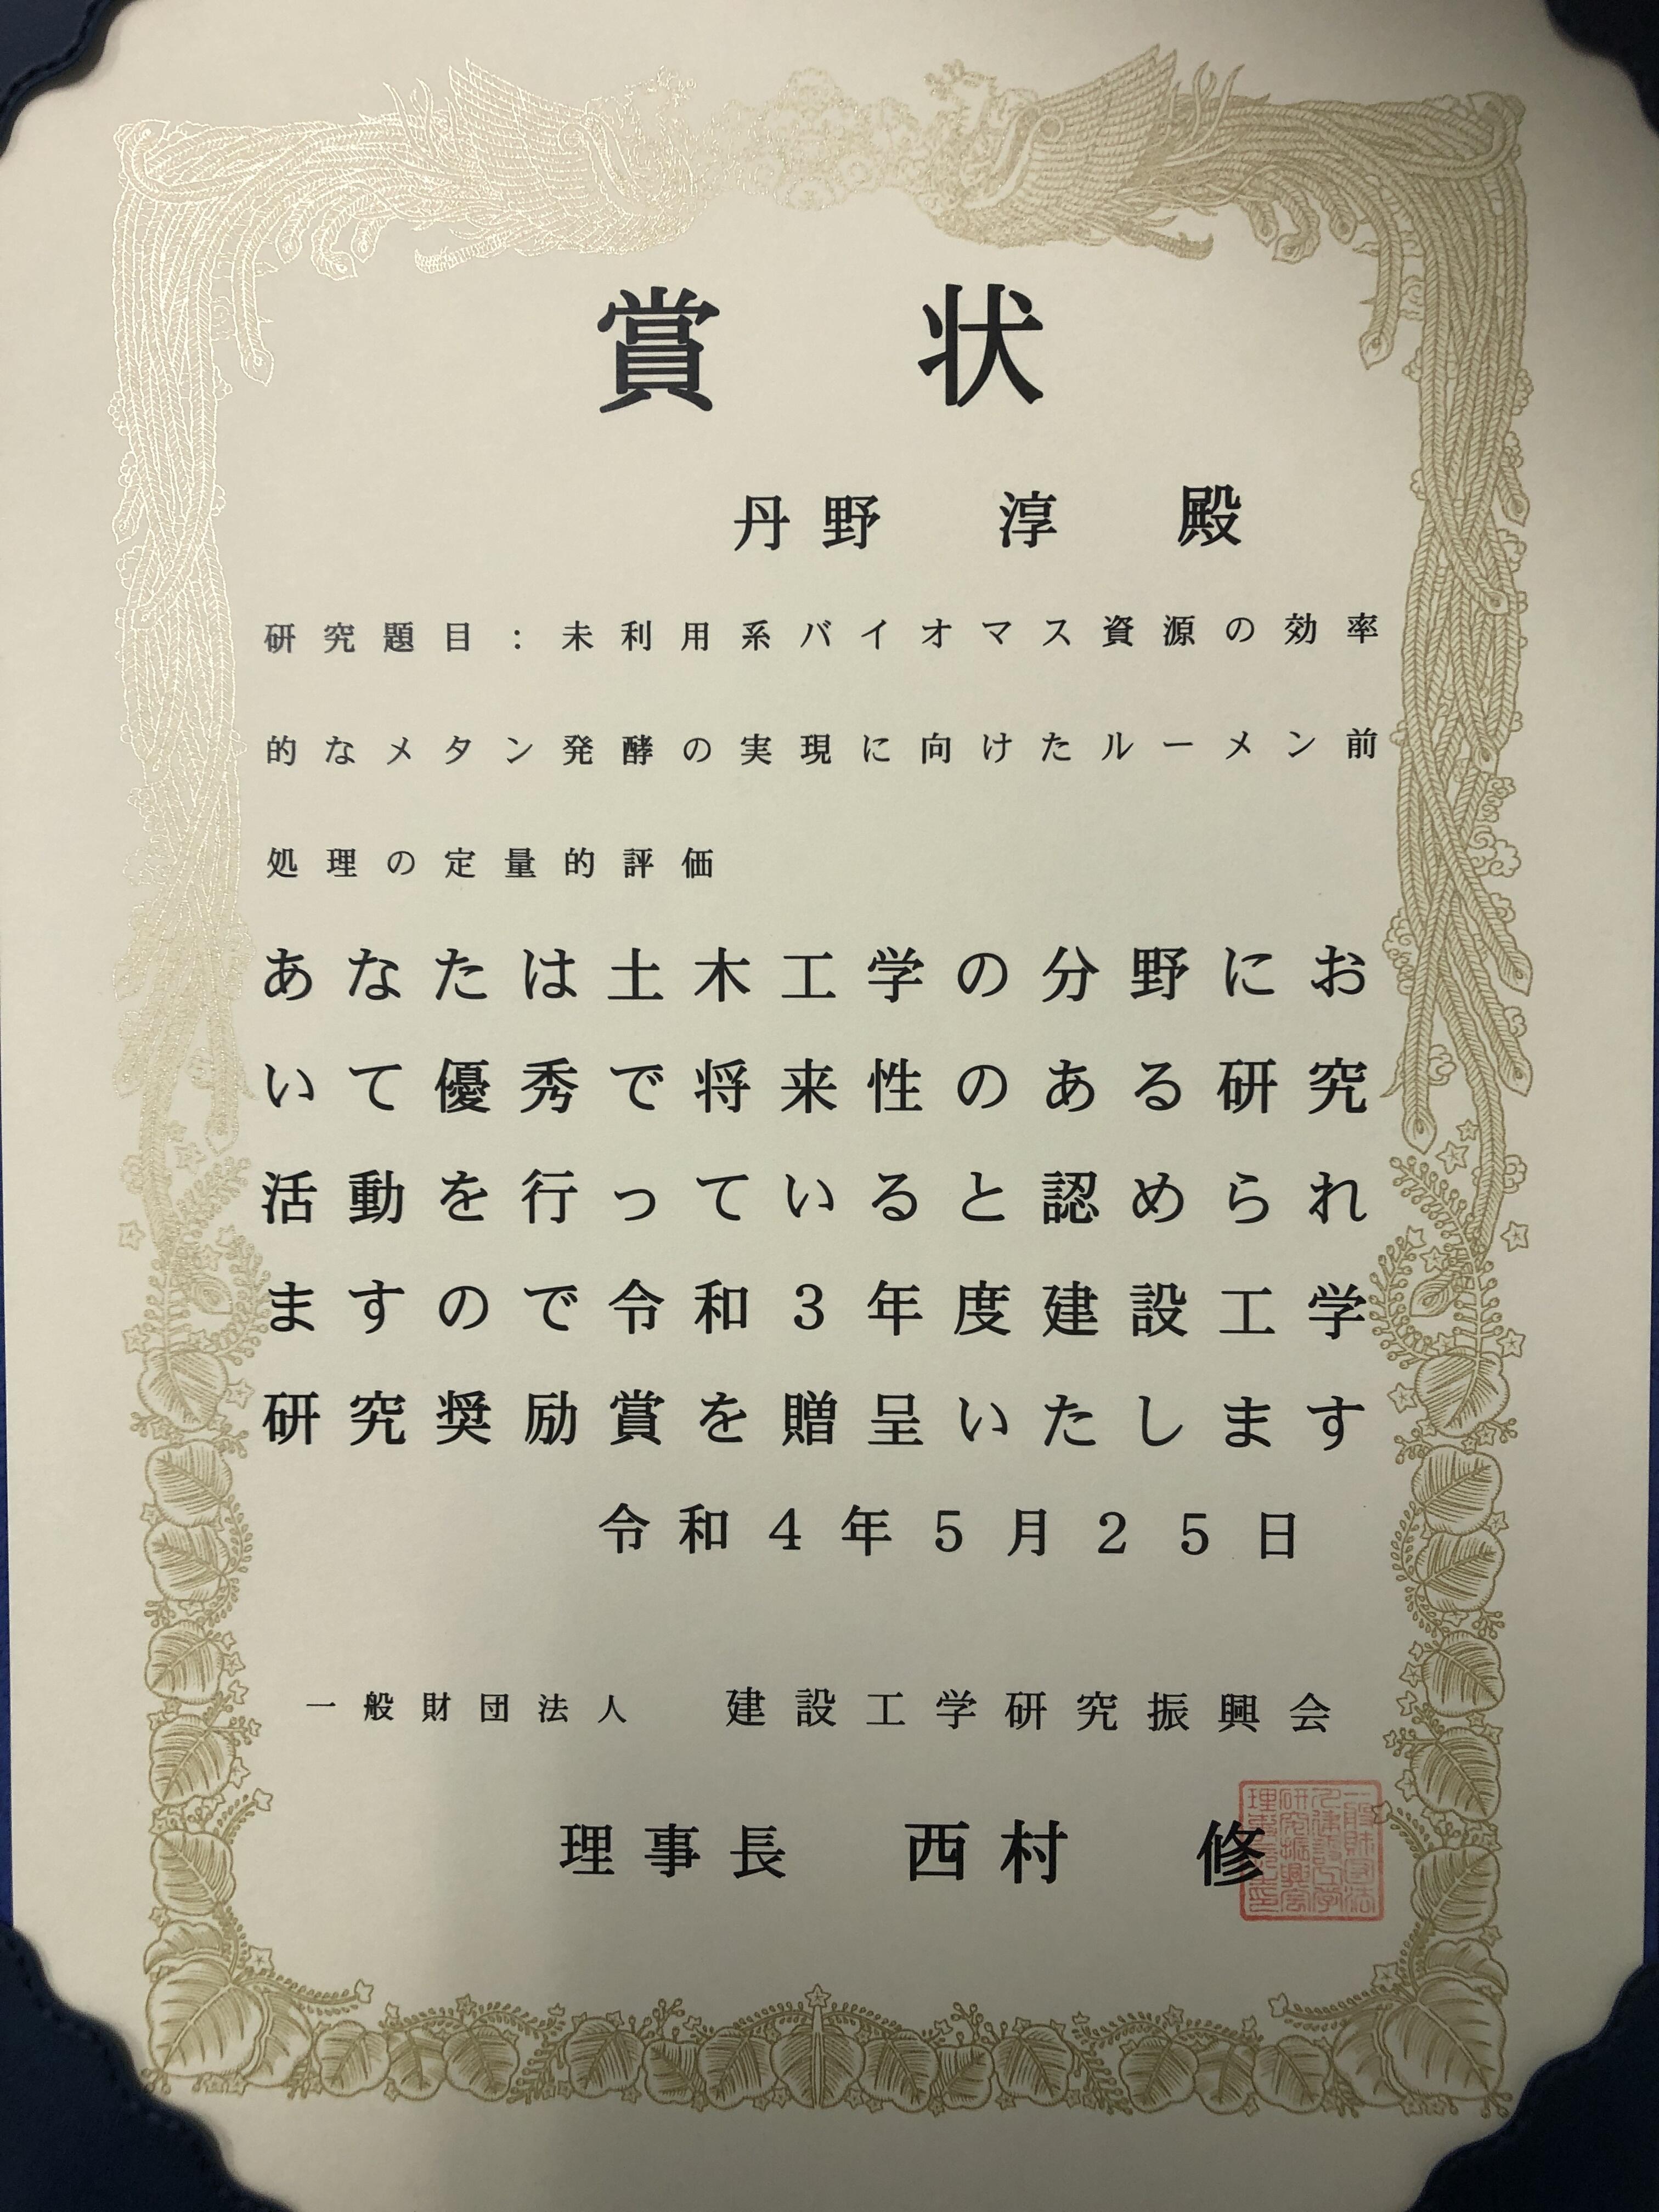 賞状
丹野 淳 殿
研究題目：未利用系バイオマス資源の効率
的なメタン発酵の実現に向けたルーメン前
処理の定量的評価
あなたは土木工学の分野にお
いて優秀で将来性のある研究
活動を行っていると認められ
ますので令和３年度建設工学
研究奨励賞を贈呈いたします
令和４年５月２５日
一般財団法人 建設工学研究振興会
理事長 西村 修